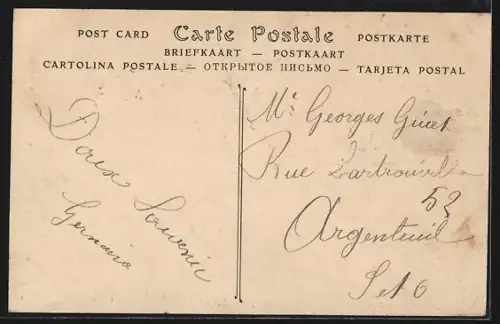 POST CARD Carte Postale POSTKARTE
BRIEFKAART — POSTKAART
CARTOLINA POSTALE — ОТКРЫТОЕ ПИСЬМО — TARJETA POSTAL
Doux
Souvenir
Germaine
Mr Georges
Rue Sartrouville
52
Argenteuil
S et O